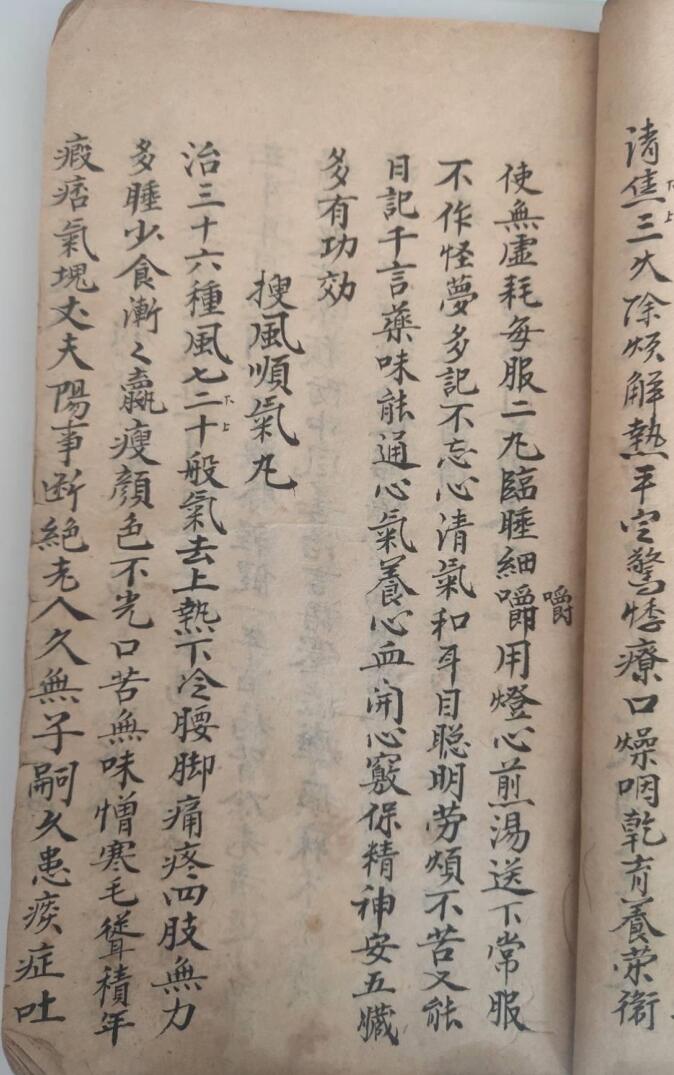 清焦三火除煩解熱平定驚悸療口燥咽乾育養荣衛
下上
使無虚耗每服二丸臨睡細嚼用燈心煎湯送下常服
嚼
不作怪夢多記不忘心清氣和耳目聪明劳煩不苦又能
日記千言藥味能通心氣養心血開心竅保精神安五臓
多有功効
搜風順氣丸
治三十六種風七二十般氣去上熱下冷腰脚痛疼四肢無力
下上
多睡少食漸〻羸瘦顔色不光口苦無味憎寒毛聳積年
瘕痞氣塊丈夫陽事断絶老人久無子嗣久患痰症吐